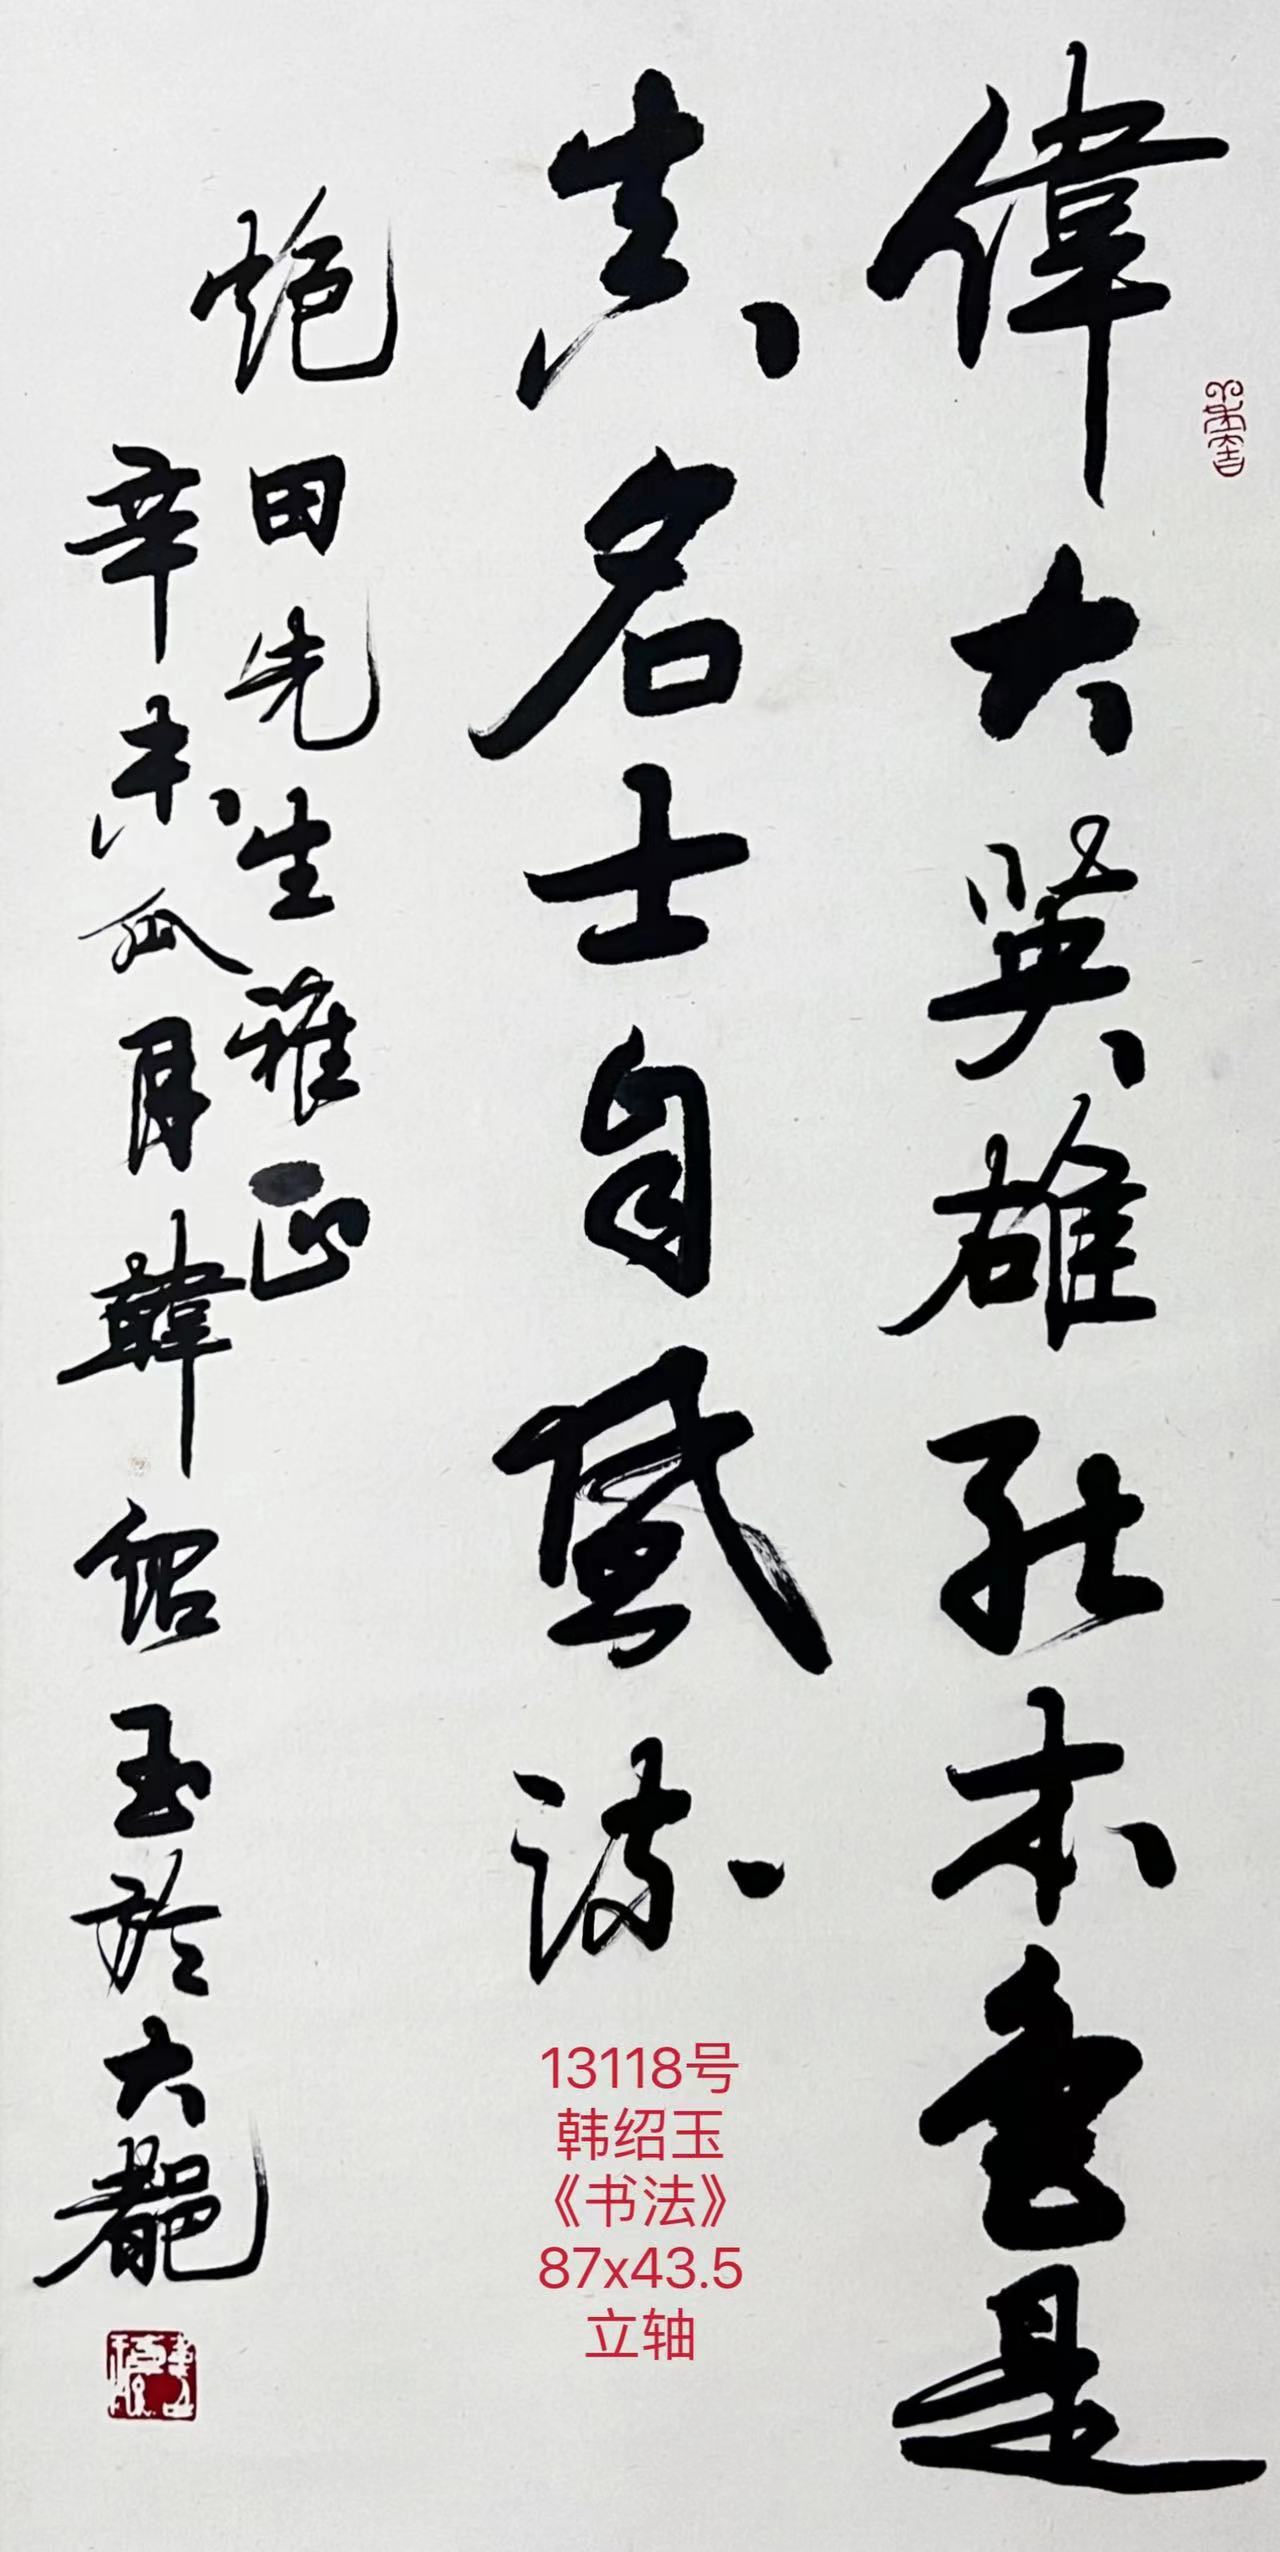 偉大英雄能本色是
真名士自風流
炮田先生雅正
辛未瓜月韓紹玉於大都
13118号
韩绍玉
《书法》
87x43.5
立轴